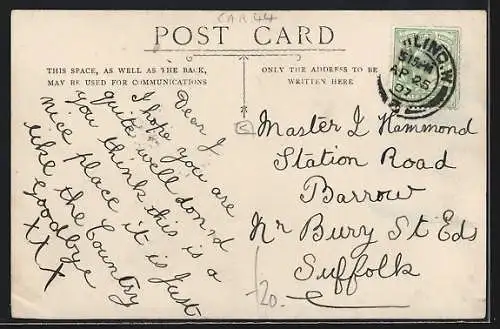 CAR 44
POST CARD
THIS SPACE, AS WELL AS THE BACK,
MAY BE USED FOR COMMUNICATIONS
ONLY THE ADDRESS TO BE
WRITTEN HERE
AP 25
07
Dear J
I hope you are
quite well don d
you think this is a
nice place it is Just
like the Country
Goodbye
xxx
Master J Hammond
Station Road
Barrow
Nr Bury St Eds
Suffolk